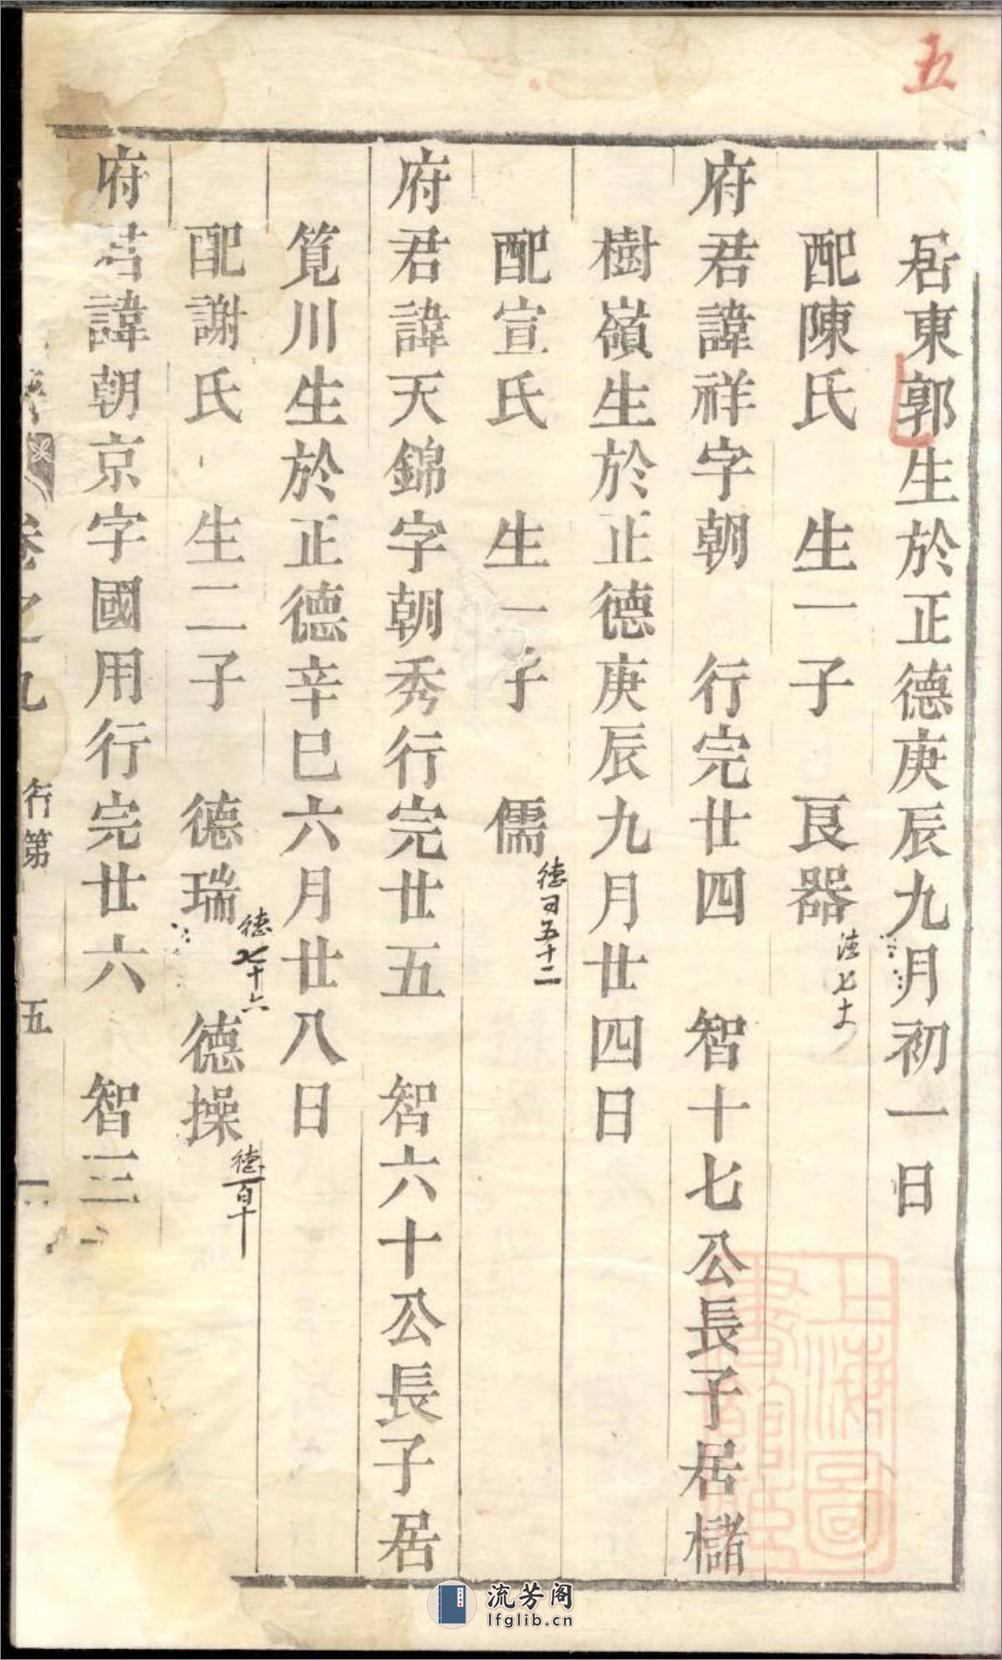 五
居東郭生於正德庚辰九月初一日
配陳氏 生一子 良器
府君諱祥字朝 行完廿四 智十七公長子居櫧
樹嶺生於正德庚辰九月廿四日
配宣氏 生一子 儒 德五十二
府君諱天錦字朝秀行完廿五 智六十公長子居
筧川生於正德辛巳六月廿八日
配謝氏 生二子 德瑞 德七十六 德操 德百十
府君諱朝京字國用行完廿六 智三
卷之九 行第 五
上海圖書館藏
流芳阁
lfglib.cn